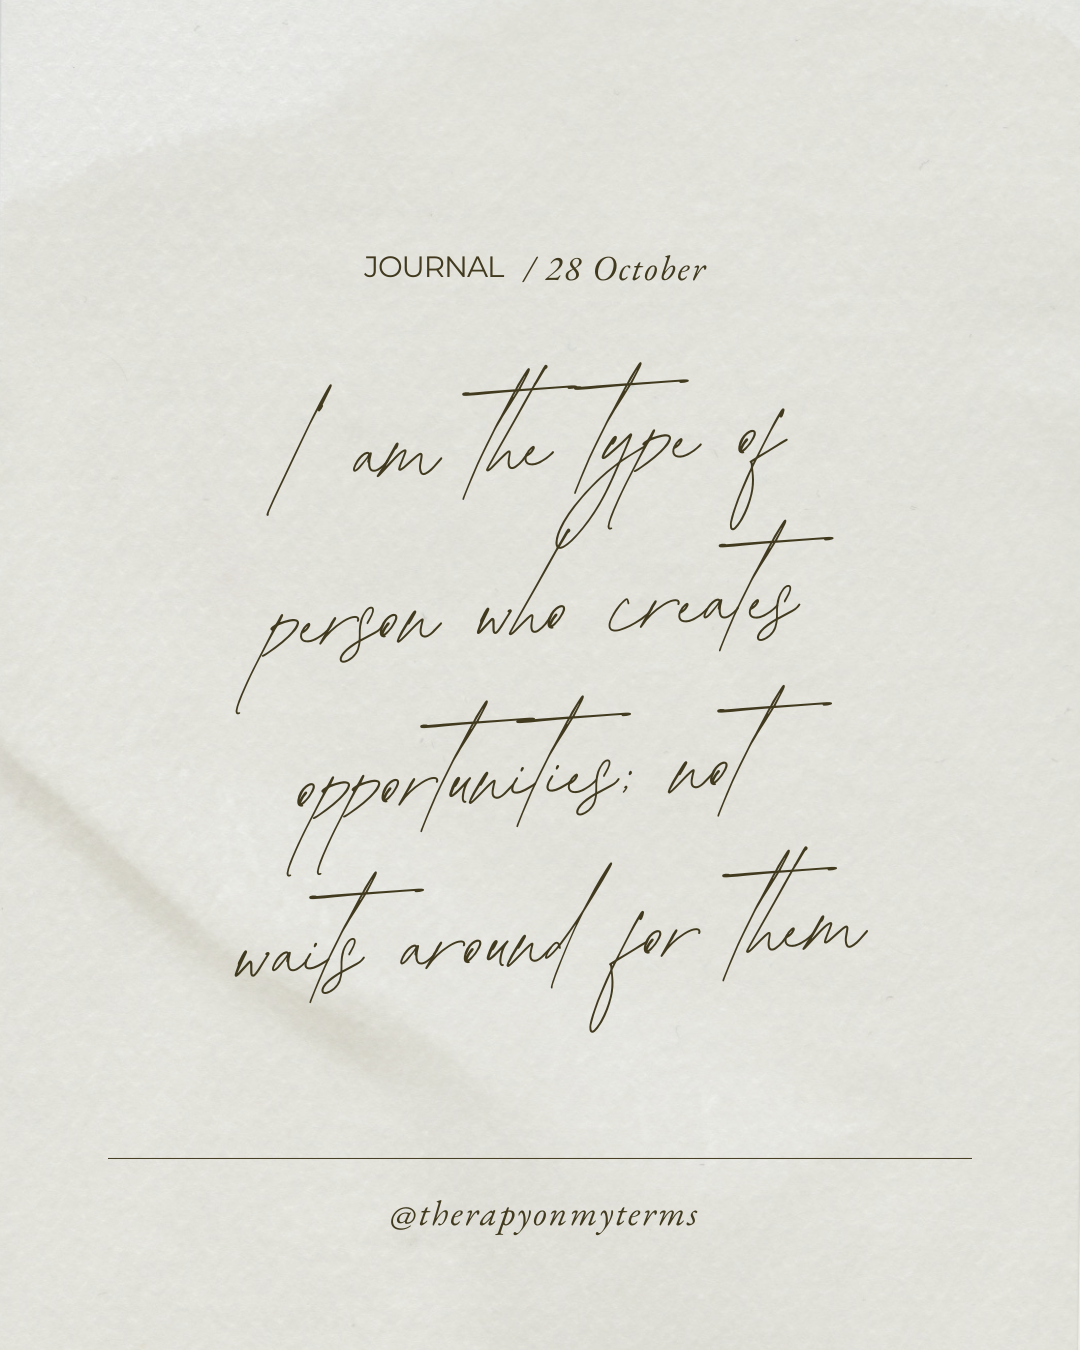 JOURNAL / 28 October
I am the type of
person who creates
opportunities; not
waits around for them
@therapyonmyterms